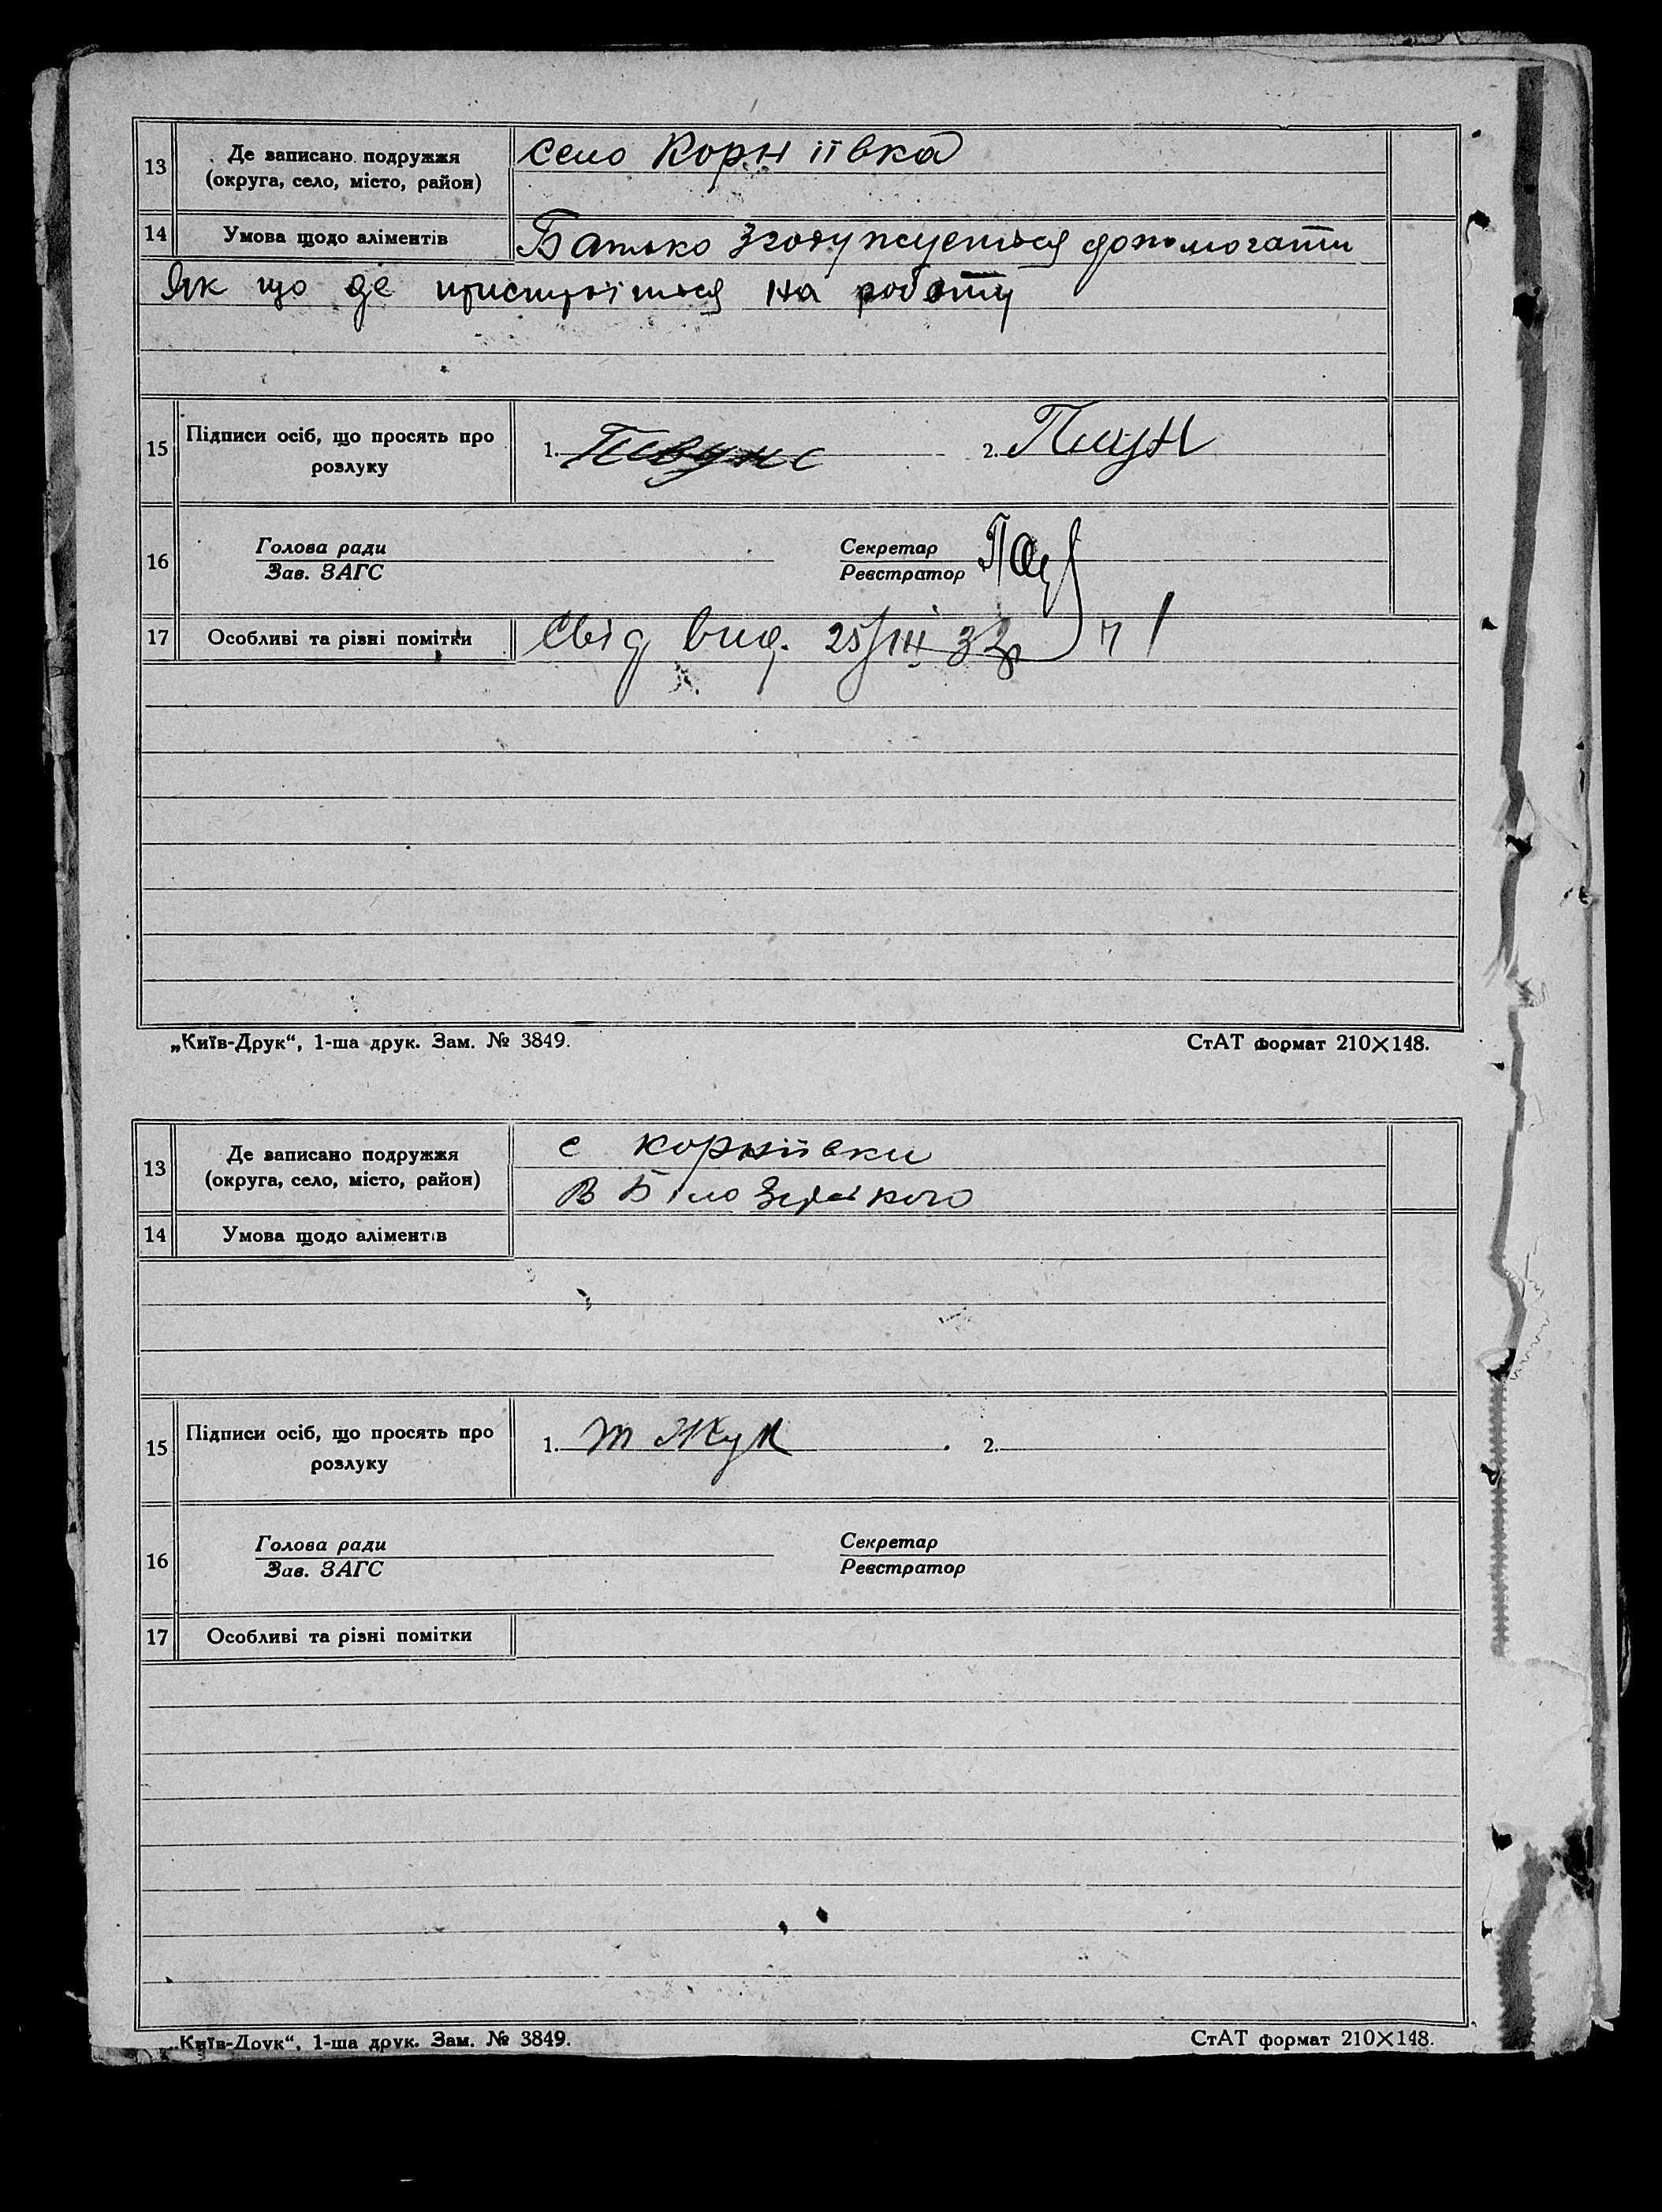 13 Де записано подружжя (округа, село, місто, район) село Корніївка
14 Умова щодо аліментів Батько згожужується допомогати
Як що де приструїться на роботу
15 Підписи осіб, що просять про розлуку 1. 2.
16 Голова ради Зав. ЗАГС Секретар Реєстратор
17 Особливі та різні помітки Свід вид. 25/III 32р
„Київ-Друк“, 1-ша друк. Зам. № 3849. СтАТ формат 210×148.
13 Де записано подружжя (округа, село, місто, район) с корніївки
В Біло
14 Умова щодо аліментів
15 Підписи осіб, що просять про розлуку 1. т Жук 2.
16 Голова ради Зав. ЗАГС Секретар Реєстратор
17 Особливі та різні помітки
„Київ-Друк“, 1-ша друк. Зам. № 3849. СтАТ формат 210×148.